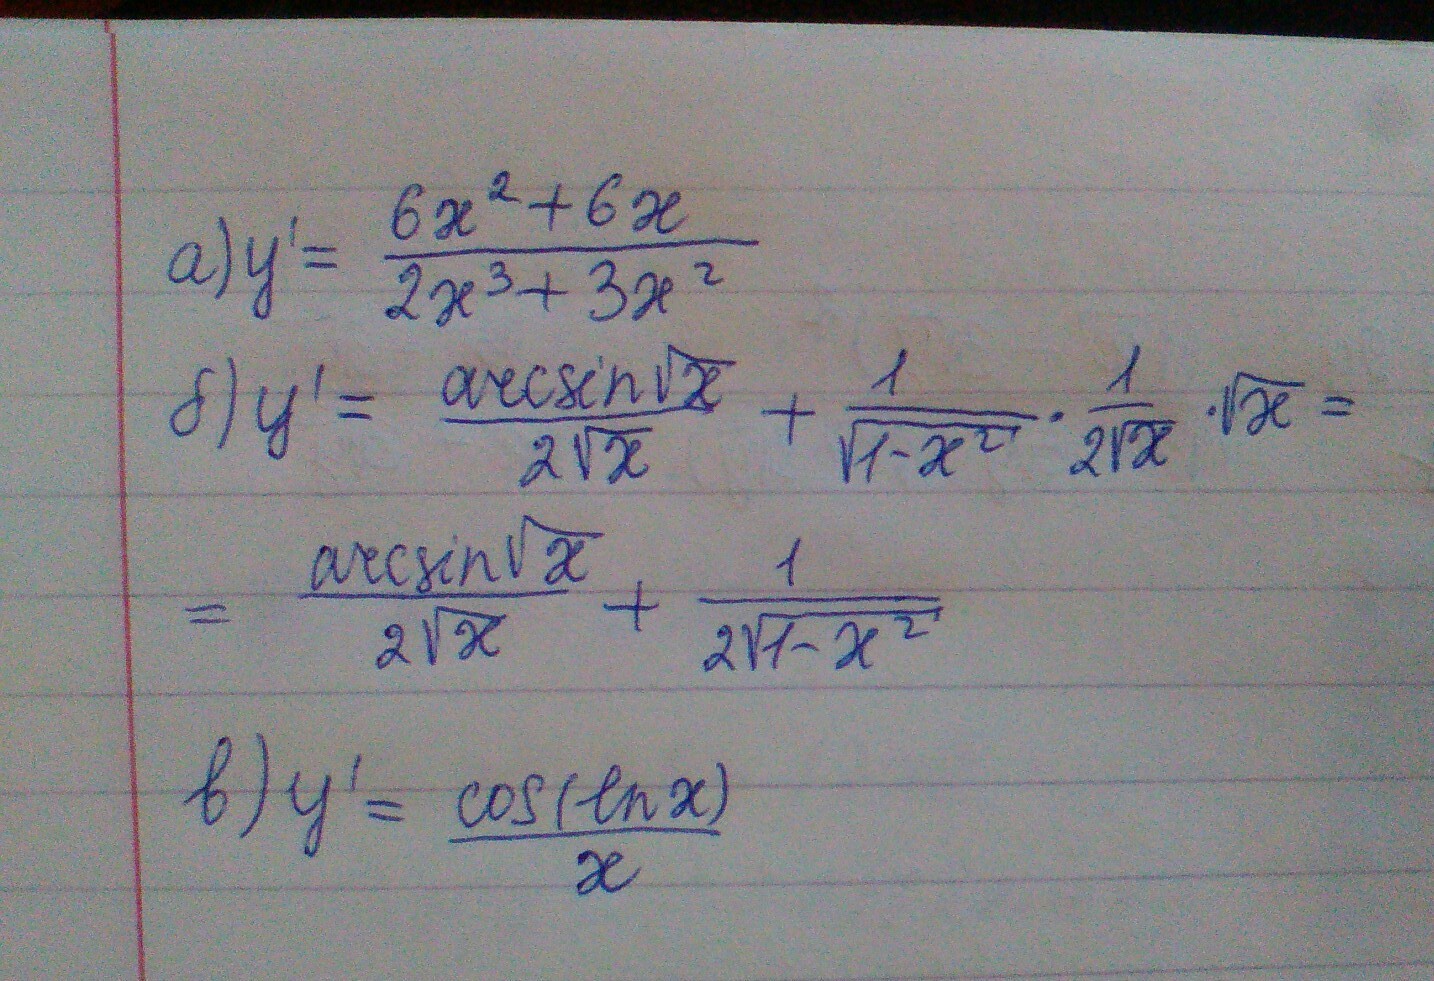 а) y' = (6x² + 6x) / (2x³ + 3x²)
б) y' = (arcsin√x) / (2√x) + 1 / √(1-x²) · 1 / (2√x) · √x =
= (arcsin√x) / (2√x) + 1 / (2√(1-x²))
в) y' = cos(ln x) / x